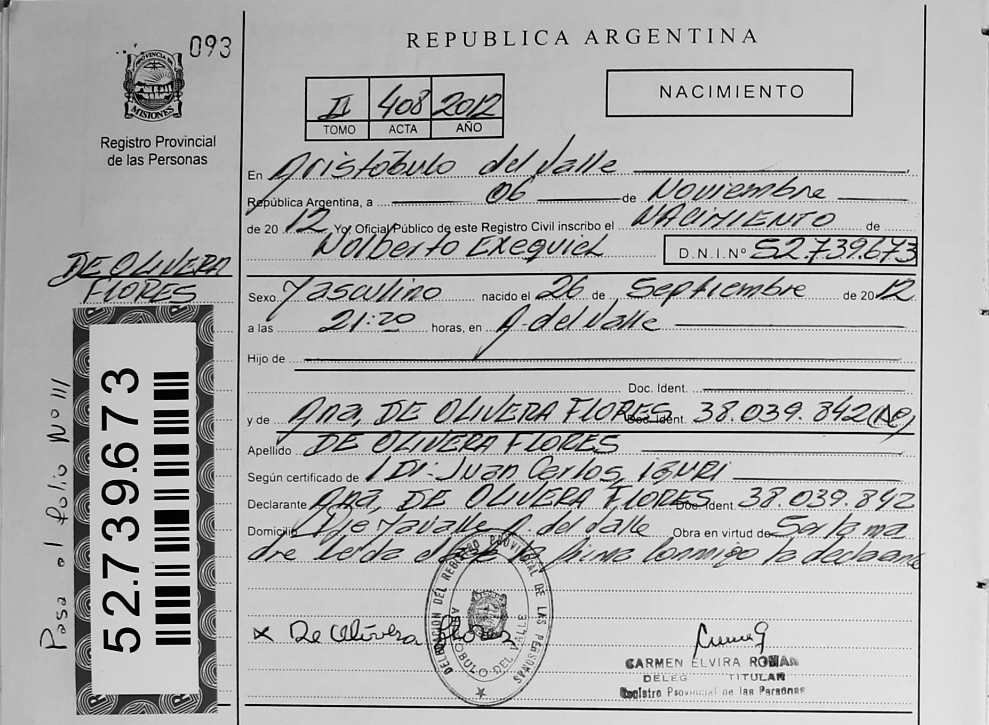 093
REPUBLICA ARGENTINA
PROVINCIA DE MISIONES
Registro Provincial
de las Personas
II 408 2012
TOMO ACTA AÑO
NACIMIENTO
En Aristóbulo del Valle
República Argentina, a 06 de Noviembre
de 2012 Yo, Oficial Público de este Registro Civil inscribo el NACIMIENTO de
Nolberto Exequiel D.N.I.Nº 52.739.673
DE OLIVERA
FLORES
Sexo Masculino nacido el 26 de Septiembre de 2012
a las 21:20 horas, en A. del Valle
Hijo de
Doc. Ident.
y de Ana, DE OLIVERA FLORES Doc. Ident. 38.039.842 (Ar)
Apellido DE OLIVERA FLORES
Según certificado de Dr. Juan Carlos, IGURI
Declarante Ana, DE OLIVERA FLORES Doc. Ident. 38.039.842
Domicilio A. del Valle Obra en virtud de Ser la ma
dre Leída el acta la firma conmigo la declarante
52.739.673
Pasa al folio Nº 111
DELEGACION DEL REGISTRO PROVINCIAL DE LAS PERSONAS
ARISTOBULO DEL VALLE
x De Olivera Flores
CARMEN ELVIRA ROMAN
DELEG TITULAR
Registro Provincial de las Personas